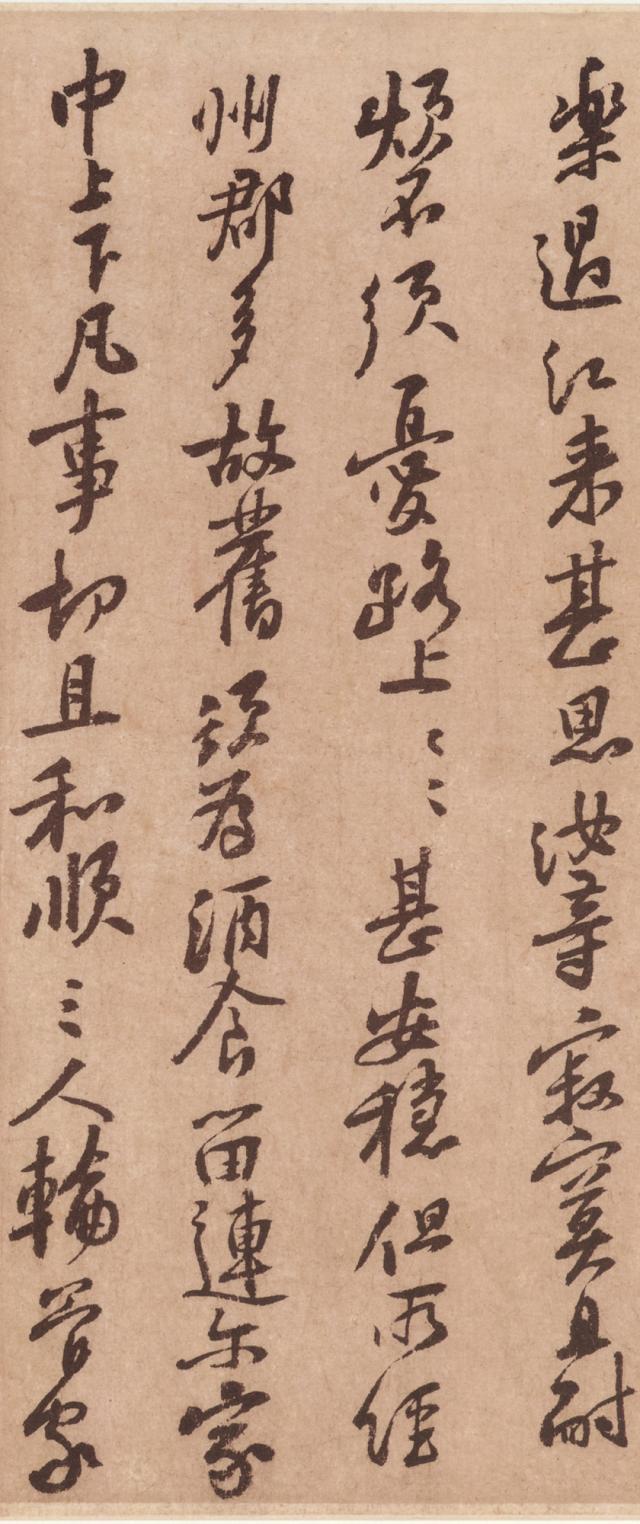 樂過江来甚思汝等寂寞且耐
煩不須憂路上〻甚安穩但所經
州郡多故舊須為酒食留連尔家
中上下凡事切且和順三人輪管家